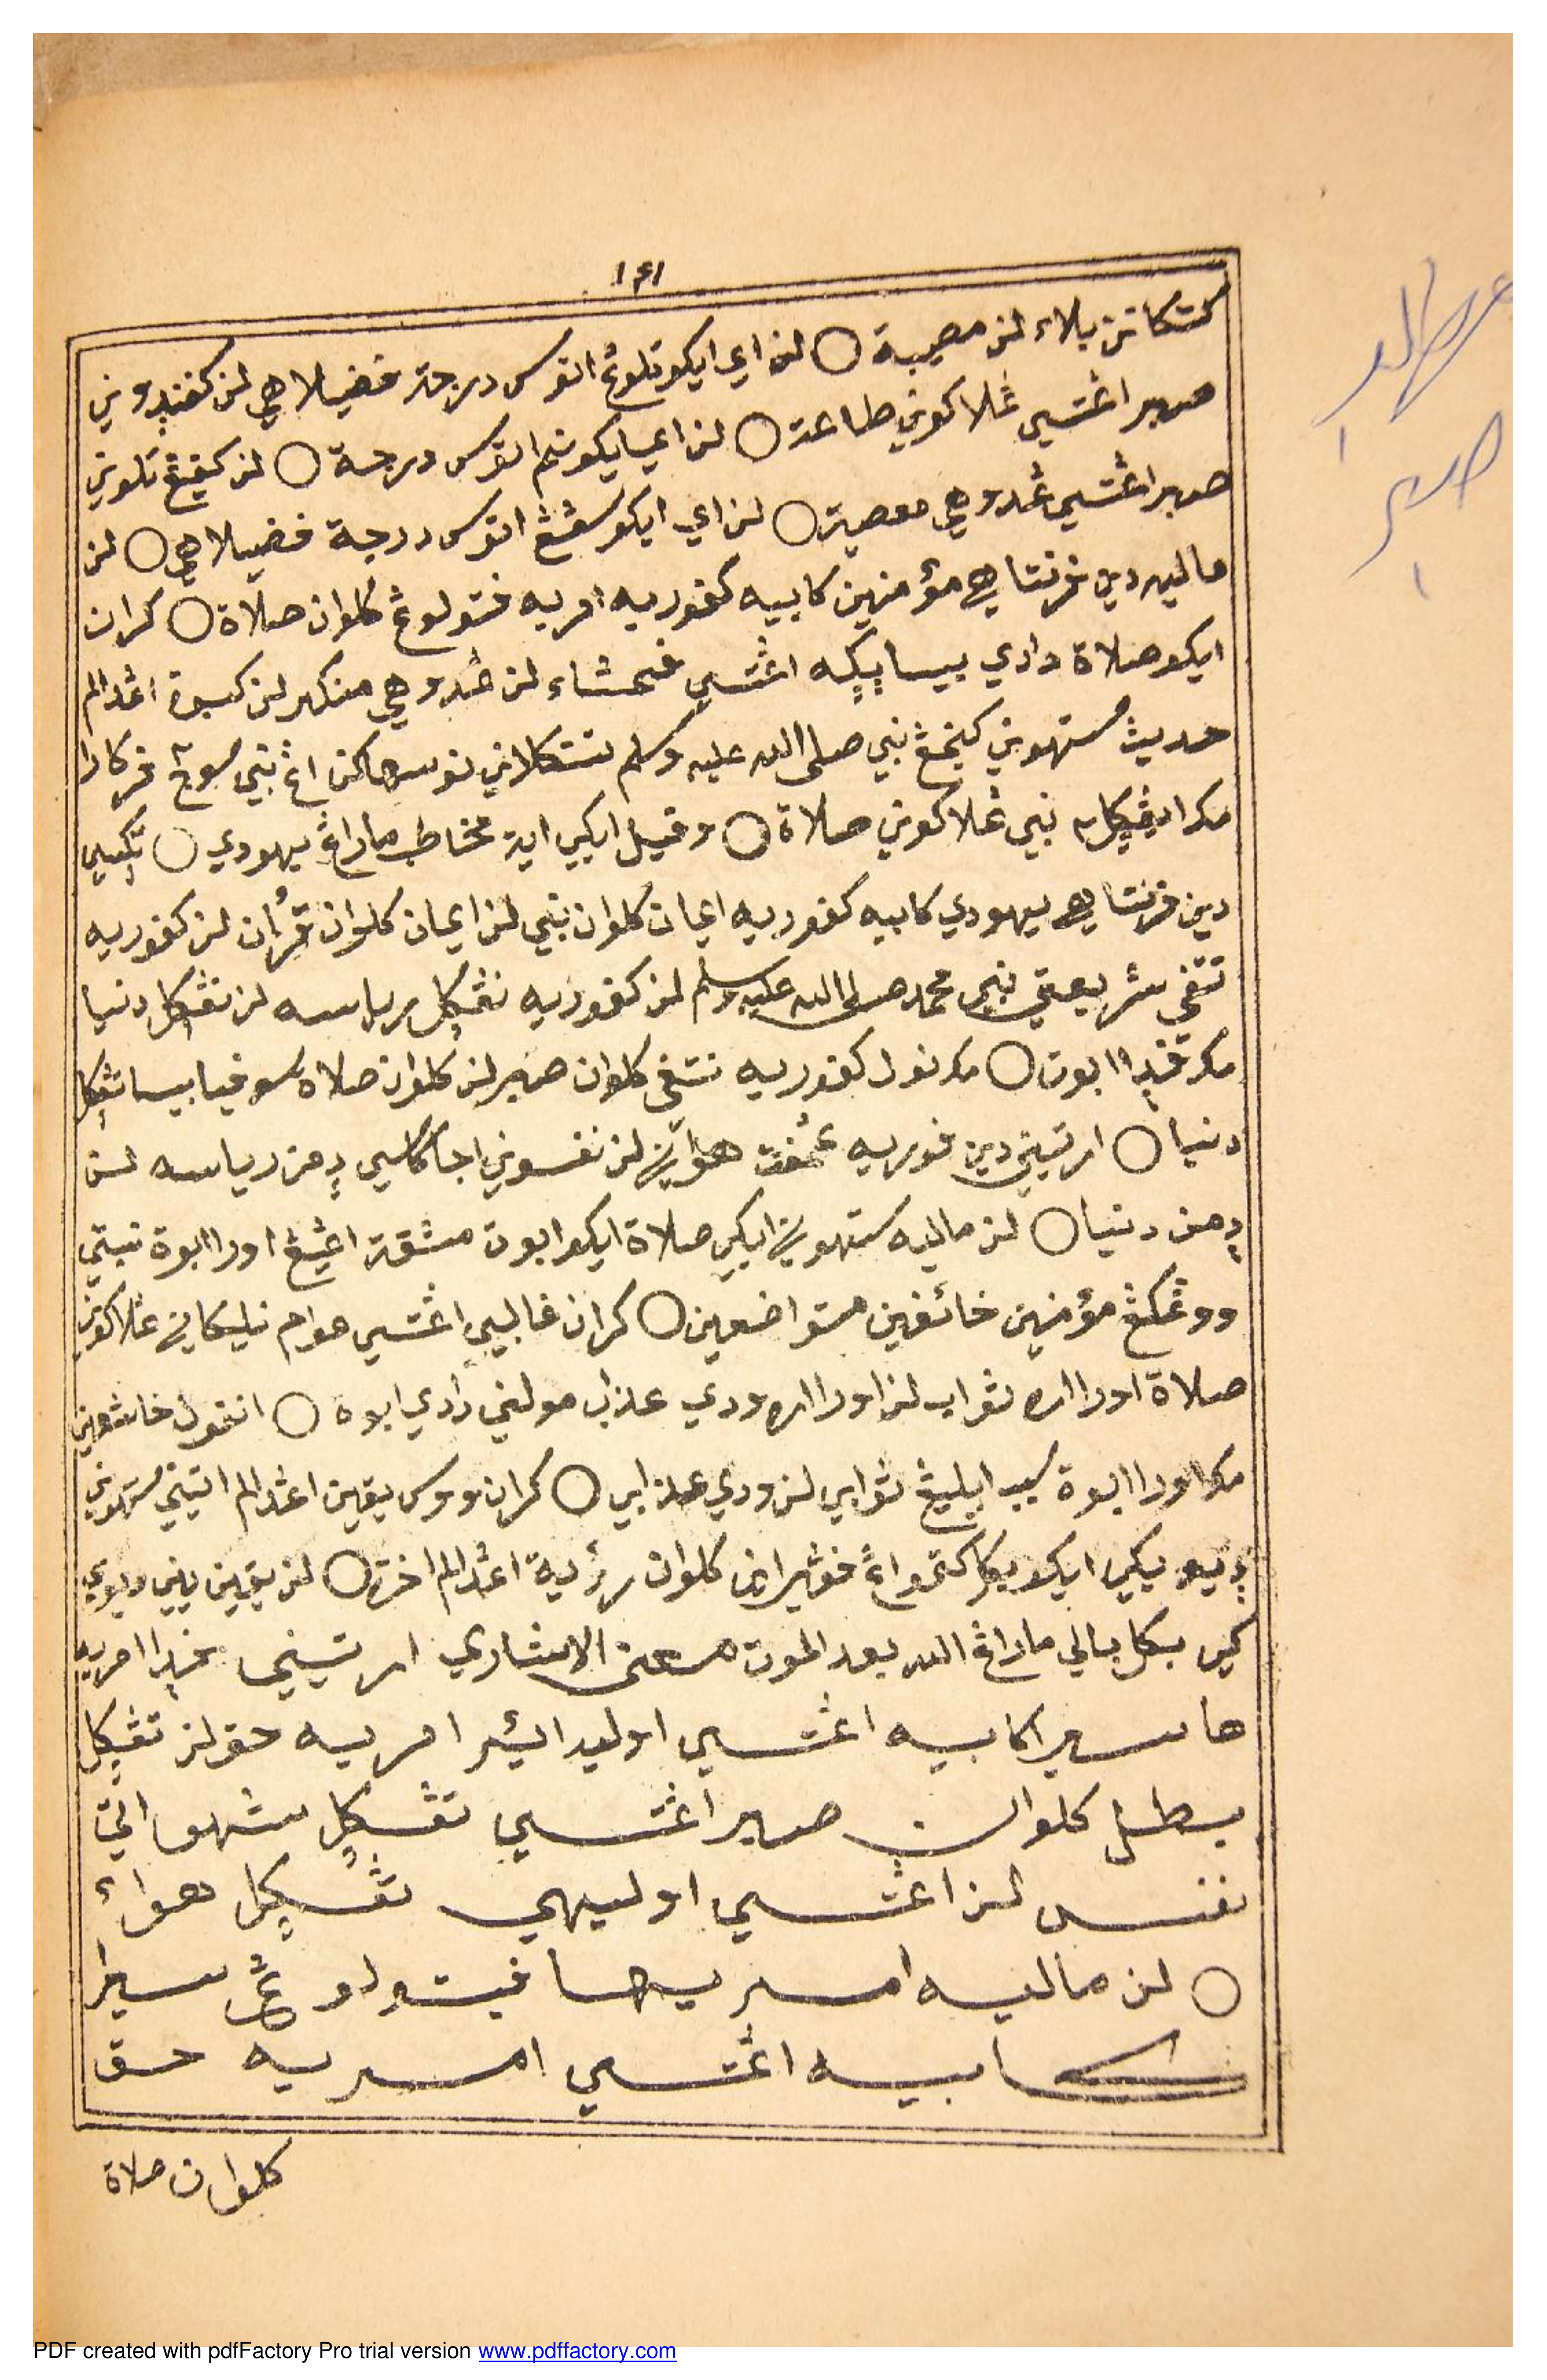 ١٤١
كتكانن بلاء لن مصيبة ○ لن اي ايكو تلوڠ اتوس درجة فضيلاهي لن كڤنڊوني
صبر اڠتسي ڠلاكوني طاعة ○ لن اي ايكو نم اتوس درجة ○ لن كڤيڠ تلوني
صبر اڠتسي ڠدوهي معصية ○ لن اي ايكو سڠڠ اتوس درجة فضيلاهي ○ لن
ماليه دين فرنتاهي مؤمنين كابيه كفوريه امريه فتولوڠ كلوان صلاة ○ كران
ايكو صلاة دادي بيسا يڮه اڠتسي فحشاء لن ڠدوهي منكر لن كسبوة اڠدالم
حديث ستهوني كنجڠ نبي صلى الله عليه وسلم تتكلاني نوسهاكن اڠ نبي سوجي فركارا
مكا ايڠڮال نبي ڠلاكوني صلاة ○ وقيل ايكي اية مخاطب ماراڠ يهودي ○ تڮسي
دين فرنتاهي يهودي كابيه كفوريه ايمان كلوان نبي لن ايمان كلوان قرأن لن كفوريه
تتفي شريعتي نبي محمد صلى الله عليه وسلم لن كفوريه نڠڮل رياسه لن نڠڮل دنيا
مكا قڊا ابوت ○ مك نولي كفوريه نتفي كلوان صبر لن كلوان صلاة سوفيا بيسا نڠڮل
دنيا ○ ارتيني دين فوريه ڠمفت هواني لن نفسوني اجا كاسي دمن رياسه لن
دمن دنيا ○ لن ماليه ستهوني ايكي صلاة ايكو ابوت مشقة اڠيڠ اورا ابوة نبتي
ووڠكڠ مؤمنين خائفين متواضعين ○ كران غالبي اڠتسي عوام نليكاني ڠلاكوني
صلاة اورا اره ثواب لن اورا اره ودي عذاب مولني دادي ابوة ○ انفون خاشعين
مكا اورا ابوة سبب ايليڠ ثوابي لن ودي عذابي ○ كران ووس يقين اڠدالم اتيني ستهوني
ديوىكي ايكو بكال كتمو اڠ فڠيران كلوان رؤية اڠدالم اخرة ○ لن يقين ييني ديوي
كي بكل بالي ماراڠ الله بعد الموت معنى الاشاري ارتيني فڊا امريه
هاسيرا كابيه اڠتسي اوليه ايرا امريه حق لن تڠڮل
بطل كلوان صبر اڠتسي تڠڮل شهواتي
نفس لن اڠتسي اوليهي تڠڮل هواء
○ لن ماليه امريها فيتولوڠ سيرا
كابيه اڠتسي امريه حق
كلوان صلاة
PDF created with pdfFactory Pro trial version www.pdffactory.com